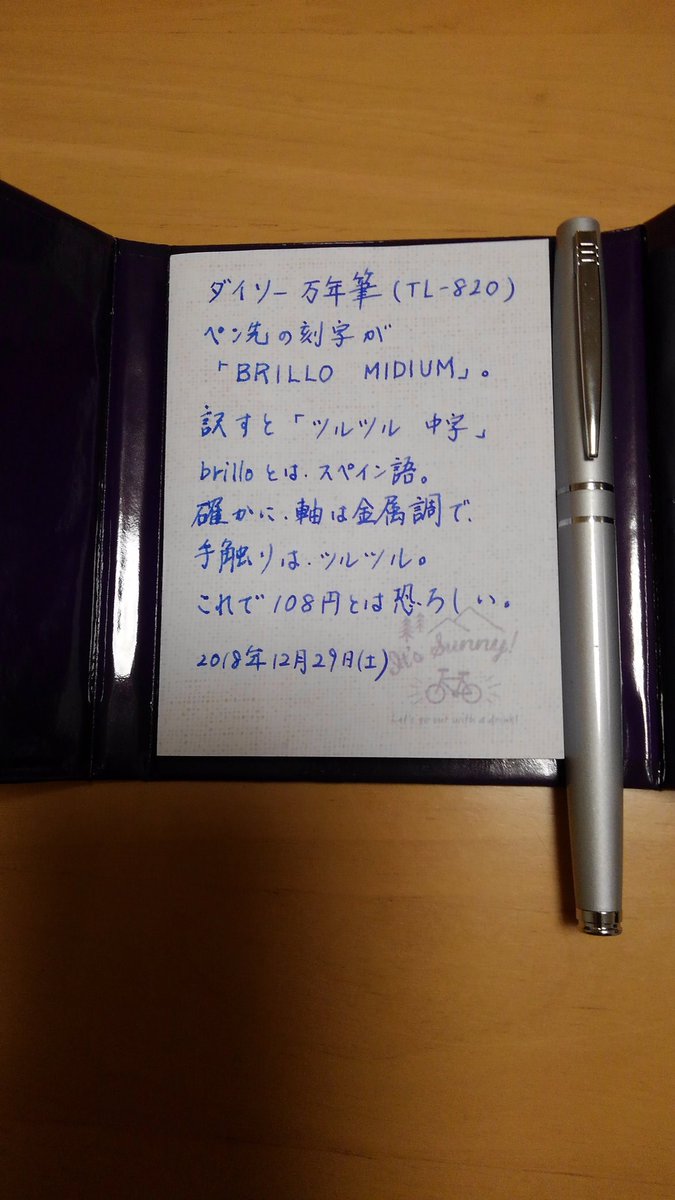 ダイソー万年筆(TL-820)
ペン先の刻字が
「BRILLO MIDIUM」。
訳すと「ツルツル 中字」
brilloとは、スペイン語。
確かに、軸は金属調で、
手触りは、ツルツル。
これで108円とは恐ろしい。
2018年12月29日(土)
It's Sunny!
Let's go out with a drink!